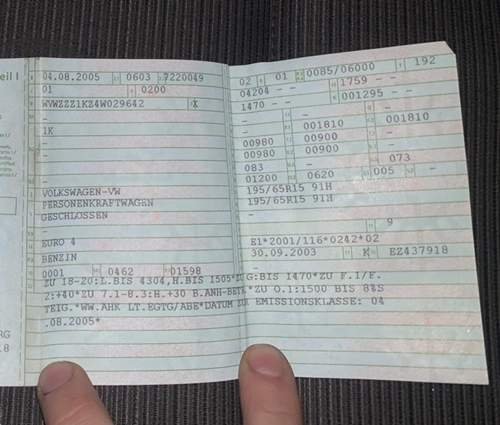 eil I
04.08.2005 0603 7220049
01 0200
WVWZZZ1KZ4W029642 X
-
-
1K
-
-
VOLKSWAGEN-VW
PERSONENKRAFTWAGEN
GESCHLOSSEN
-
EURO 4
BENZIN
0001 0462 01598
02 01 0085/06000 192
04204 - - 1759 - -
1470 - - 001295 - -
- - -
- 001810 001810
00980 00900 -
00980 00900 -
083 - 073
01200 0620 005 -
195/65R15 91H
195/65R15 91H
-
- 9
E1*2001/116*0242*02
30.09.2003 K EZ437918
ZU 18-20:L.BIS 4304,H.BIS 1505*ZU G:BIS 1470*ZU F.1/F.
2:+40*ZU 7.1-8.3:H.+30 B.ANH-BETR.*ZU O.1:1500 BIS 8%S
TEIG.*WW.AHK LT.EGTG/ABE*DATUM ZUR EMISSIONSKLASSE: 04
.08.2005*
RG
.8